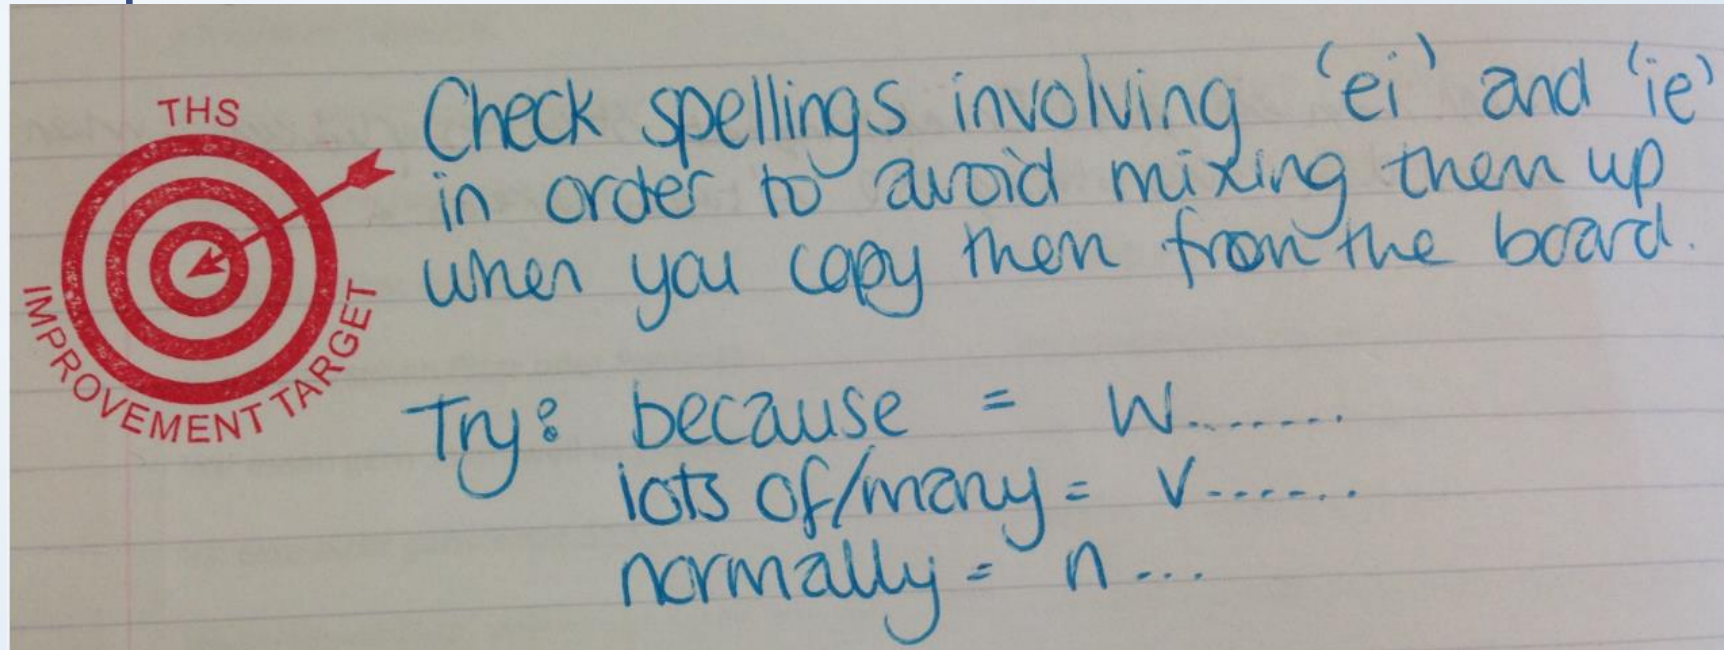 THS
IMPROVEMENT TARGET
Check spellings involving 'ei' and 'ie'
in order to avoid mixing them up
when you copy them from the board.
Try: because = w.......
lots of/many = v......
normally = n...